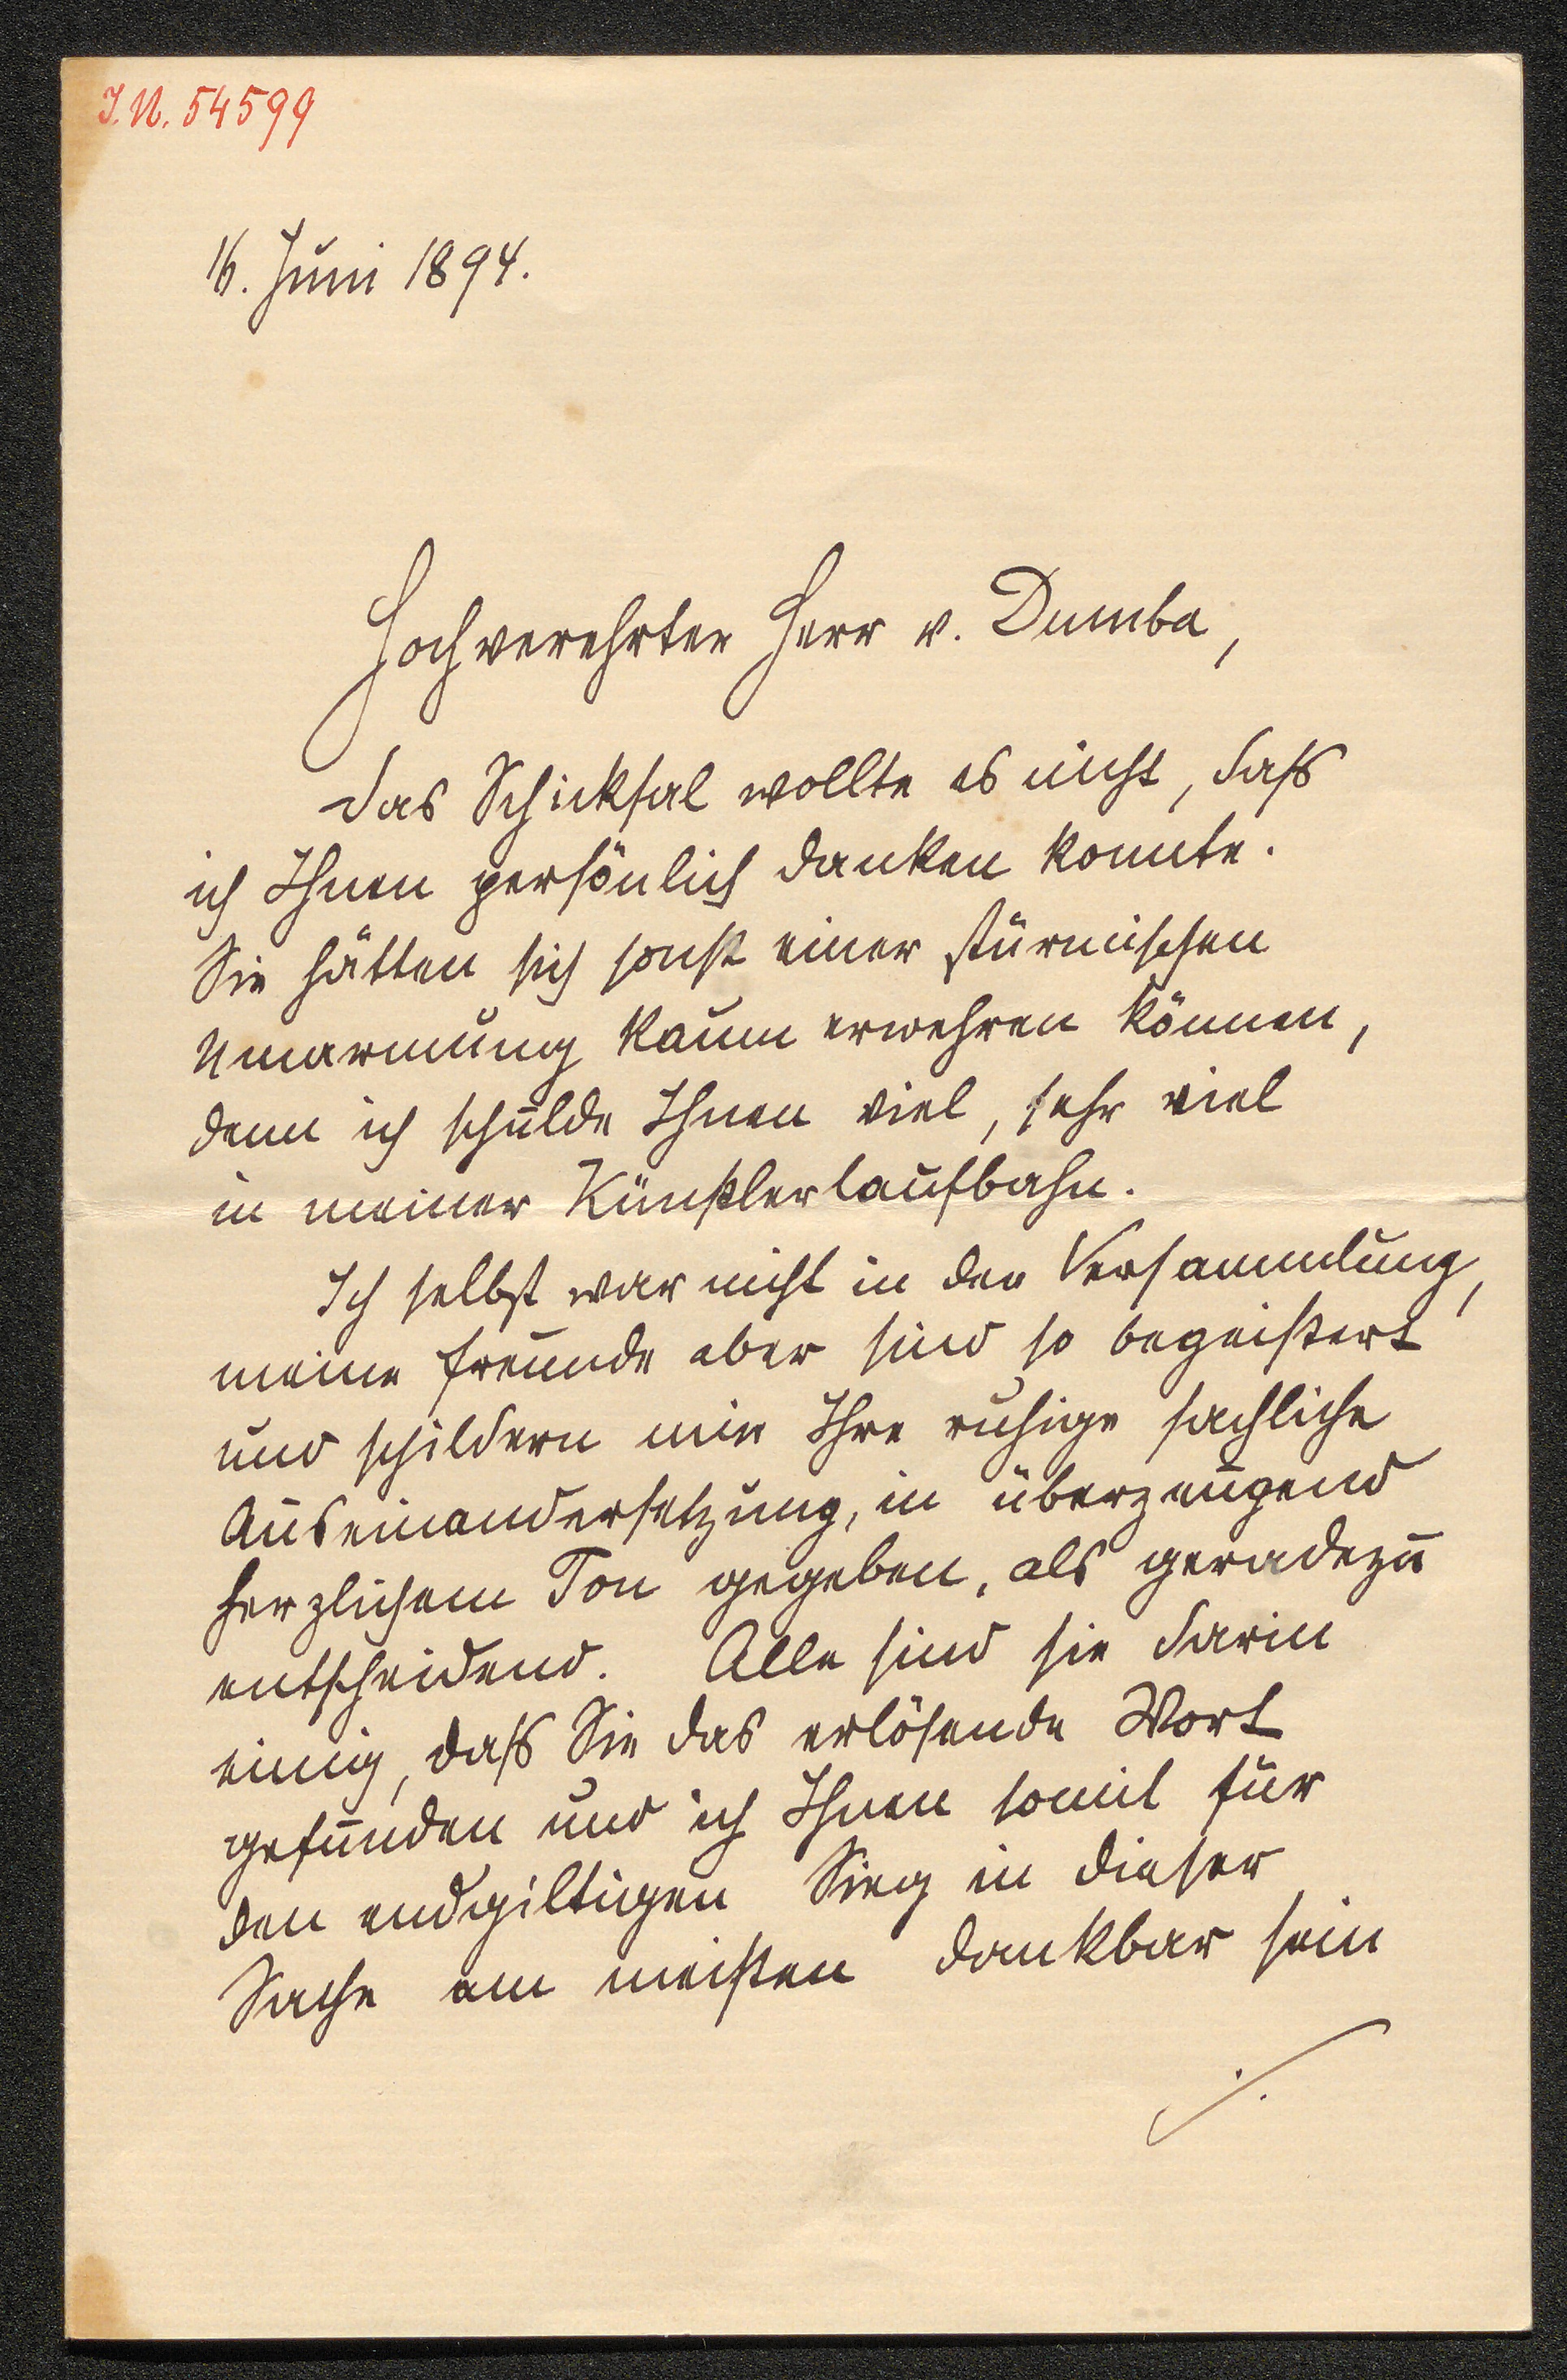 I.N. 54599
16. Juni 1894.
Hochverehrter Herr v. Dumba,
das Schicksal wollte es nicht, daß
ich Ihnen persönlich danken konnte.
Sie hätten sich sonst einer stürmischen
Umarmung kaum erwehren können,
denn ich schulde Ihnen viel, sehr viel
in meiner Künstlerlaufbahn.
Ich selbst war nicht in der Versammlung,
meine Freunde aber sind so begeistert
und schildern mir Ihre ruhige sachliche
Auseinandersetzung, in überzeugend
herzlichem Ton gegeben, als geradezu
entscheidend. Alle sind sie darin
einig, daß Sie das erlösende Wort
gefunden und ich Ihnen somit für
den endgiltigen Sieg in dieser
Sache am meisten dankbar sein
./.